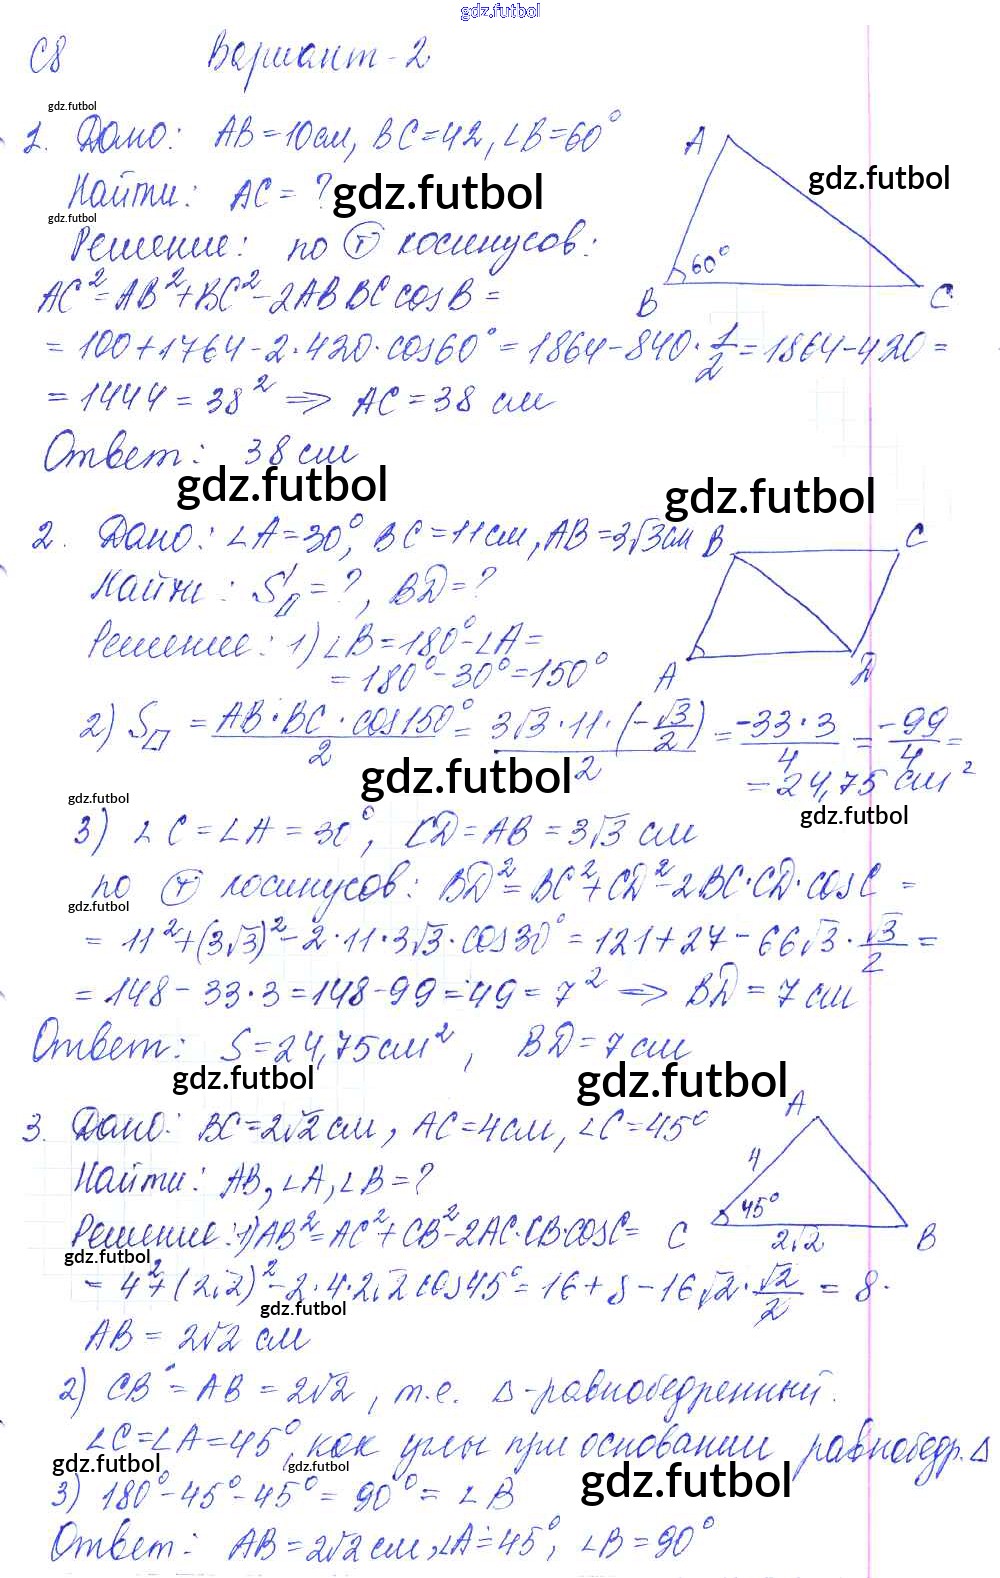 gdz.futbol
С8 Вариант-2
gdz.futbol
1. Дано: AB=10см, BC=42, ∠B=60°
Найти: AC=? gdz.futbol
A gdz.futbol
gdz.futbol
Решение: по Ⓣ косинусов:
60°
B C
AC²=AB²+BC²-2AB BC cosB=
=100+1764-2·420·cos60°=1864-840·1/2=1864-420=
=1444=38² ⇒ AC=38 см
Ответ: 38 см
gdz.futbol gdz.futbol
2. Дано: ∠A=30°, BC=11см, AB=3√3см B C
Найти: S▱=?, BD=?
Решение: 1) ∠B=180°-∠A=
=180°-30°=150°
A D
2) S▱ = AB·BC·cos150°/2 = 3√3·11·(-√3/2)/2 = -33·3/4 = -99/4 =
gdz.futbol =24,75 см²
gdz.futbol gdz.futbol
3) ∠C=∠A=30°, CD=AB=3√3 см
по Ⓣ косинусов: BD²=BC²+CD²-2BC·CD·cosC=
gdz.futbol
=11²+(3√3)²-2·11·3√3·cos30°=121+27-66√3·√3/2=
=148-33·3=148-99=49=7² ⇒ BD=7 см
Ответ: S=24,75см², BD=7 см
gdz.futbol gdz.futbol
3. Дано: BC=2√2см, AC=4см, ∠C=45°
A
4
Найти: AB, ∠A, ∠B=?
45°
Решение: 1) AB²=AC²+CB²-2AC·CB·cosC=
C 2√2 B
gdz.futbol
=4²+(2√2)²-2·4·2√2 cos45°=16+8-16√2·√2/2=8.
gdz.futbol
AB=2√2 см
2) CB=AB=2√2, т.е. Δ-равнобедренный.
∠C=∠A=45°, как углы при основании равнобедр.Δ
gdz.futbol gdz.futbol gdz.futbol
3) 180°-45°-45°=90°=∠B
Ответ: AB=2√2см, ∠A=45°, ∠B=90°